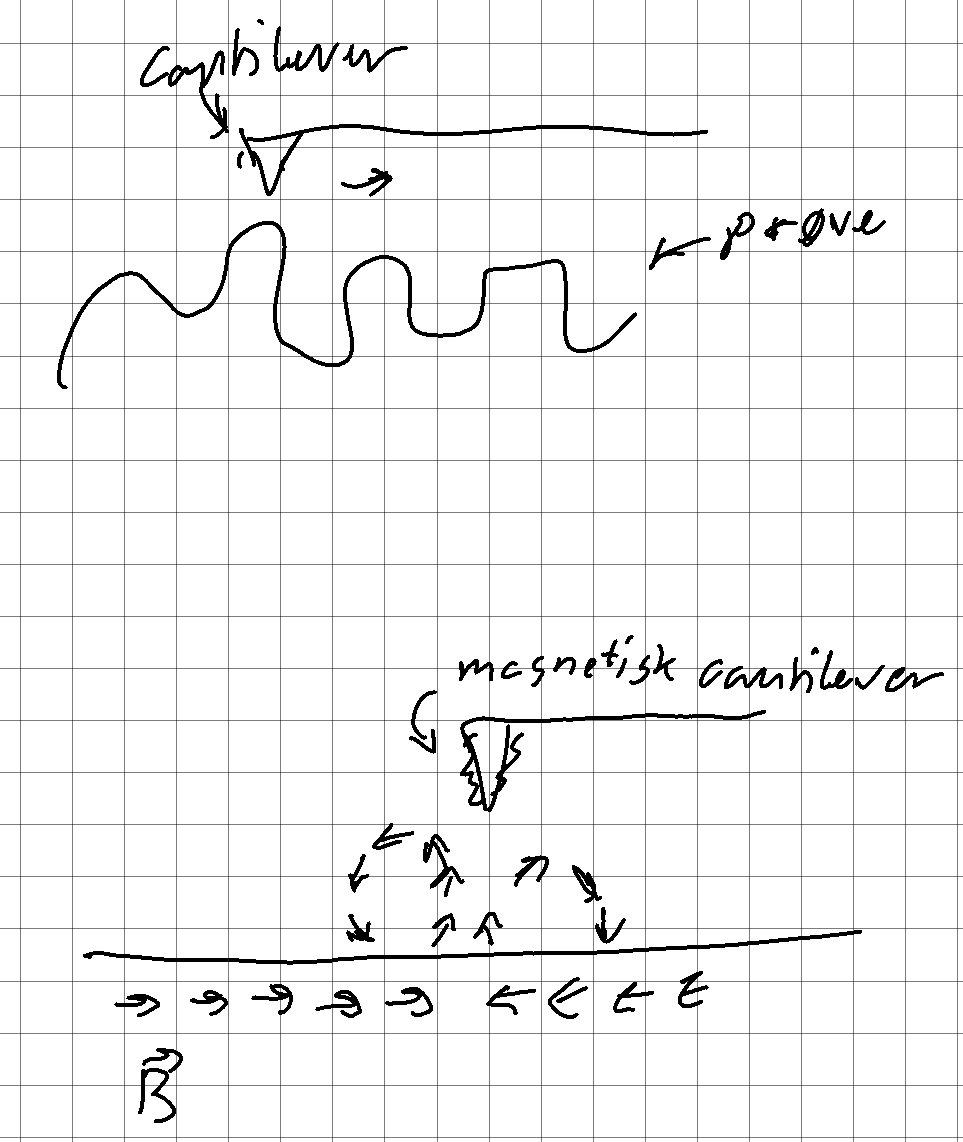 Cantilever
prøve
magnetisk cantilever
B⃗